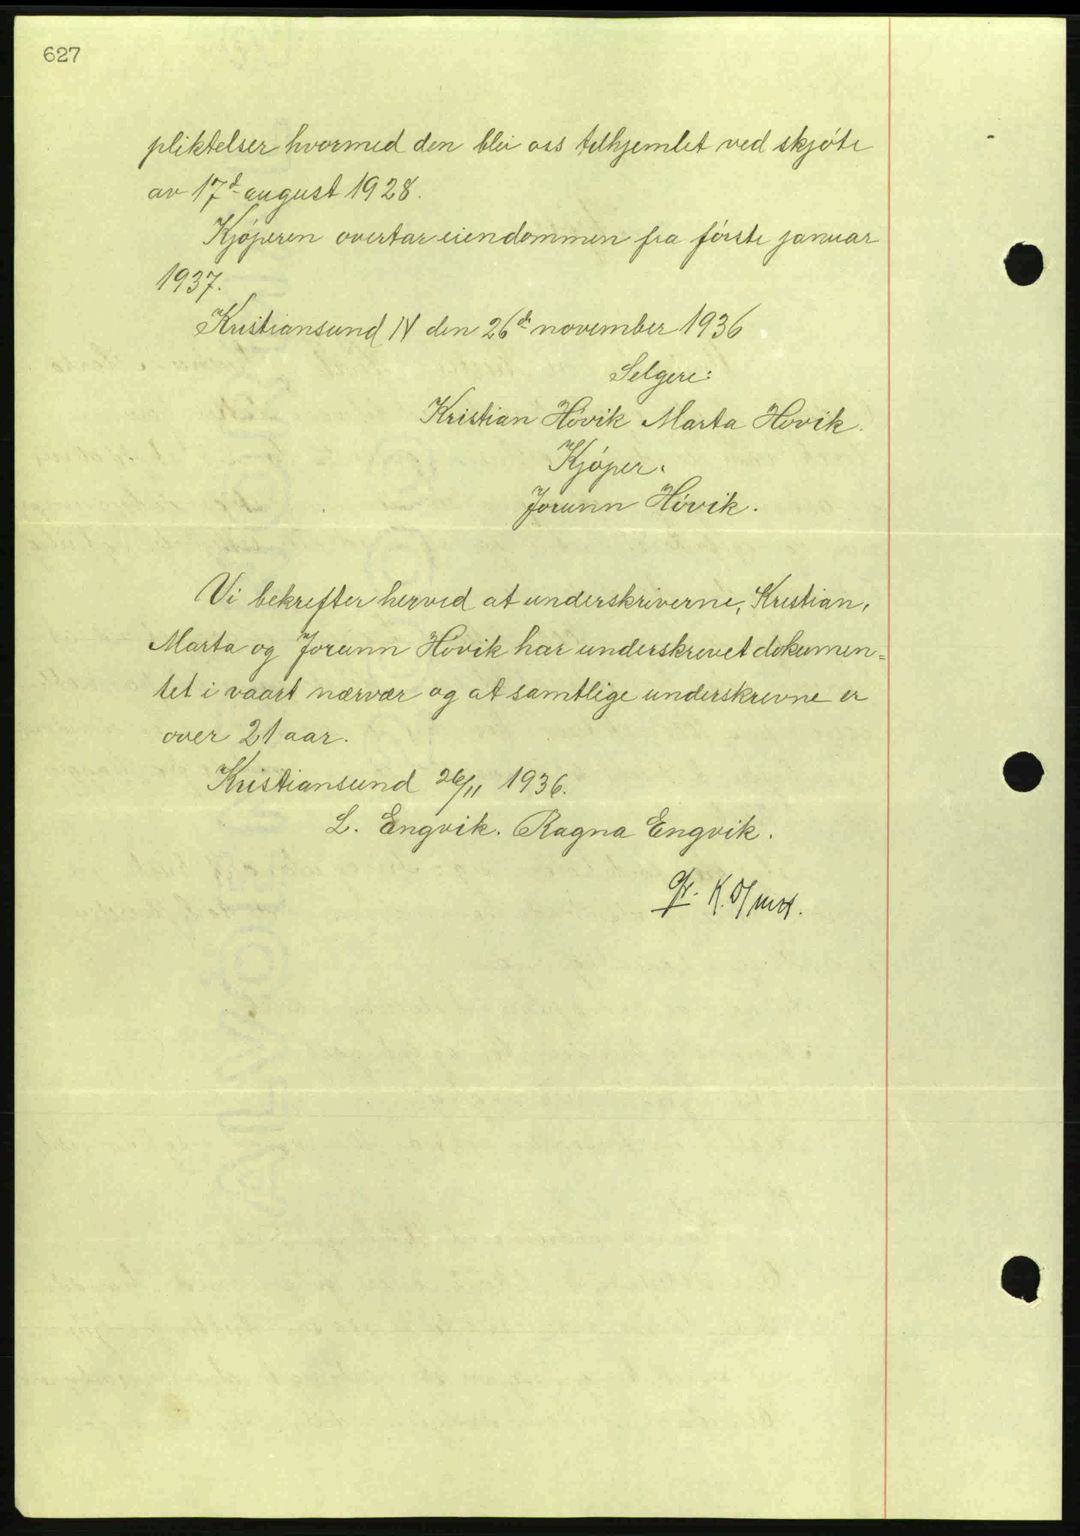 627
pliktelser hvormed den blei oss tilhjemlet ved skjóte
av 17d august 1928.
Kjóperen overtar eiendommen fra fórste januar
1937.
Kristiansund N den 26de november 1936
Selgere:
Kristian Hóvik Marta Hovik.
Kjóper.
Jorunn Hóvik.
Vi bekrefter herved at underskriverne, Kristian,
Marta og Jorunn Hovik har underskrevet dokumen=
tet i vaart nærvær og at samtlige underskrevne er
over 21 aar.
Kristiansund 26/11 1936.
L. Engvik. Ragna Engvik.
K.